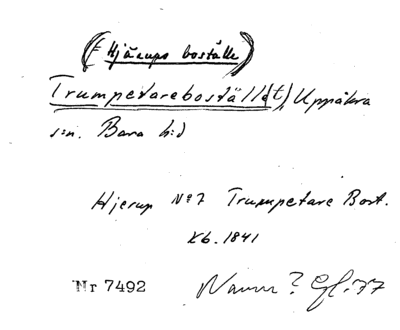 (F Hjärups boställe)
Trumpetareboställe(t), Uppåkra
s:n. Bara h:d
Hjerup No 7 Trumpetare Bost.
Kb. 1841
Nr 7492 Namn?